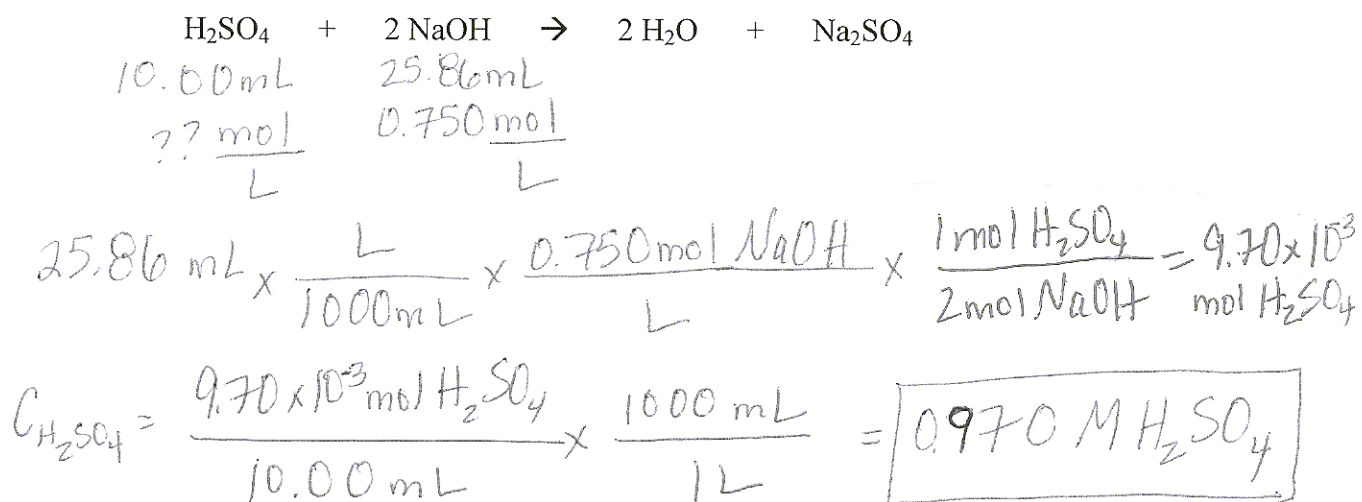 H₂SO₄ + 2 NaOH → 2 H₂O + Na₂SO₄
10.00 mL 25.86 mL
?? mol/L 0.750 mol/L
25.86 mL × L/1000 mL × 0.750 mol NaOH/L × 1 mol H₂SO₄/2 mol NaOH = 9.70 × 10⁻³ mol H₂SO₄
C_H₂SO₄ = 9.70 × 10⁻³ mol H₂SO₄/10.00 mL × 1000 mL/1 L = 0.970 M H₂SO₄